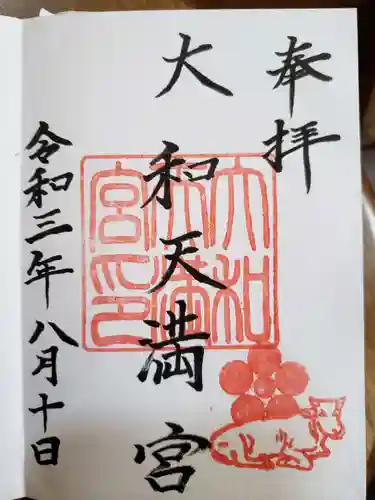 奉拝
大和天満宮
令和三年八月十日
大和
天満
宮印